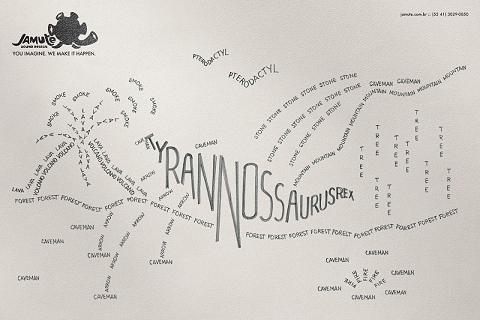 Jamute
SOUND DESIGN
YOU IMAGINE. WE MAKE IT HAPPEN.
jamute.com.br :: (55 41) 3029-0050
PTERODACTYL
PTERODACTYL
SMOKE SMOKE SMOKE
SMOKE SMOKE
SMOKE SMOKE
STONE STONE STONE STONE STONE STONE
STONE STONE STONE STONE STONE
STONE STONE STONE STONE
CAVEMAN CAVEMAN
MOUNTAIN MOUNTAIN MOUNTAIN MOUNTAIN MOUNTAIN MOUNTAIN
LAVA LAVA LAVA LAVA
VOLCANO VOLCANO VOLCANO VOLCANO
LAVA LAVA LAVA LAVA
CAVEMAN
TYRANNOSSAURUSREX
TREE TREE TREE TREE TREE TREE TREE TREE TREE
FOREST FOREST FOREST FOREST FOREST FOREST FOREST FOREST FOREST
FOREST FOREST FOREST FOREST FOREST FOREST FOREST FOREST FOREST FOREST
ARROW ARROW ARROW ARROW ARROW ARROW
CAVEMAN
CAVEMAN
CAVEMAN
CAVEMAN
CAVEMAN
CAVEMAN
CAVEMAN CAVEMAN
FIRE FIRE FIRE FIRE
CAVEMAN
CAVEMAN CAVEMAN
CAVEMAN